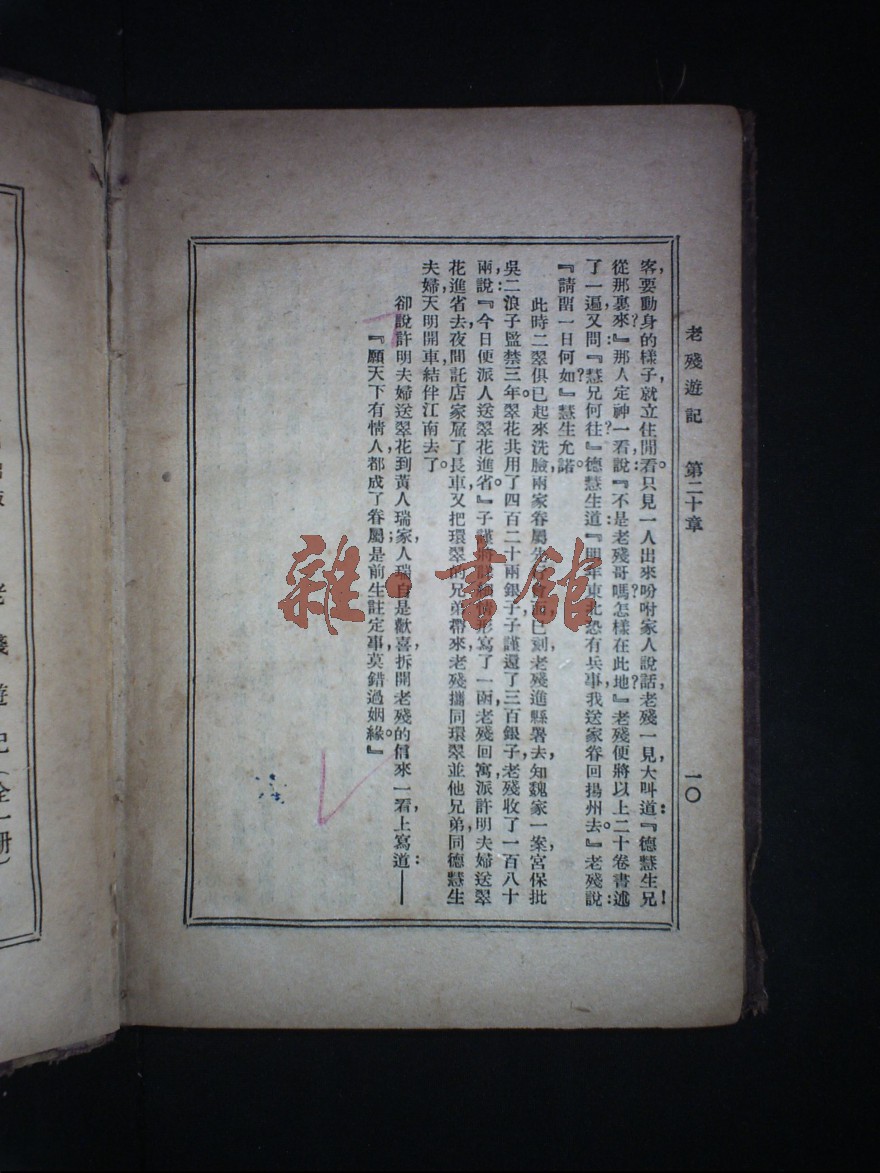 老殘遊記　第二十章　一〇
客，要動身的樣子，就立住閒看。只見一人出來吩咐家人說話，老殘一見，大叫道：『德慧生兄！
從那裏來？』那人定神一看，說：『不是老殘哥嗎？怎樣在此地？』老殘便將以上二十卷書述
了一遍，又問：『慧兄何往？』德慧生道：『明年東北恐有兵事，我送家眷回揚州去。』老殘說：
『請留一日何如？』慧生允諾。
此時二翠俱已起來洗臉，兩家眷屬先行會面。已刻，老殘進縣署去，知魏家一案，宮保批
吳二浪子監禁三年。翠花共用了四百二十兩銀子，子謹還了三百銀子，老殘收了一百八十
兩，說：『今日便派人送翠花進省。』子謹將詳細情形寫了一函。老殘回寓，派許明夫婦送翠
花進省去，夜間託店家雇了長車，又把環翠的兄弟帶來，老殘攜同環翠並他兄弟同德慧生
夫婦天明開車，結伴江南去了。
卻說許明夫婦送翠花到黃人瑞家，人瑞自是歡喜，拆開老殘的信來一看，上寫道：——
『願天下有情人，都成了眷屬；是前生註定事，莫錯過姻緣。』
老殘遊記（全一冊）
雜·書館